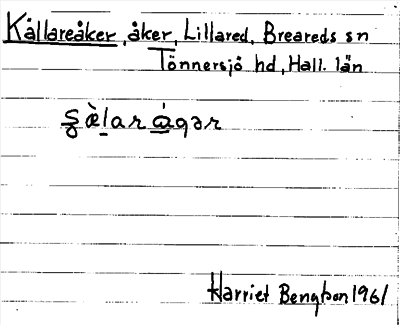 Kållareåker, åker, Lillared, Breareds sn
Tönnersjö hd, Hall. län
Harriet Bengtson 1961